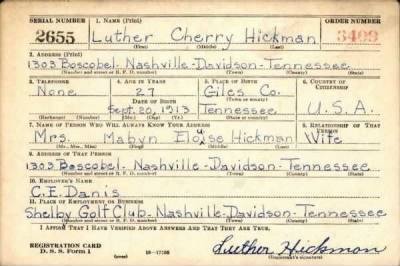 SERIAL NUMBER 1. NAME (Print) ORDER NUMBER
2655 Luther Cherry Hickman 3409
(First) (Middle) (Last)
2. ADDRESS (Print)
1303 Boscobel - Nashville - Davidson - Tennessee
(Number and street or R. F. D. number) (Town) (County) (State)
3. TELEPHONE 4. AGE IN YEARS 5. PLACE OF BIRTH 6. COUNTRY OF CITIZENSHIP
None 27 Giles Co.
DATE OF BIRTH (Town or county)
Sept. 20, 1913 Tennessee U.S.A.
(Exchange) (Number) (Mo.) (Day) (Yr.) (State or country)
7. NAME OF PERSON WHO WILL ALWAYS KNOW YOUR ADDRESS 8. RELATIONSHIP OF THAT PERSON
Mrs. Mabyn Eloise Hickman Wife
(Mr., Mrs., Miss) (First) (Middle) (Last)
9. ADDRESS OF THAT PERSON
1303 Boscobel - Nashville - Davidson - Tennessee
(Number and street or R. F. D. number) (Town) (County) (State)
10. EMPLOYER'S NAME
C.E. Danis
11. PLACE OF EMPLOYMENT OR BUSINESS
Shelby Golf Club - Nashville - Davidson - Tennessee
(Number and street or R. F. D. number) (Town) (County) (State)
I AFFIRM THAT I HAVE VERIFIED ABOVE ANSWERS AND THAT THEY ARE TRUE.
REGISTRATION CARD
D. S. S. Form 1 (over) 16-17105 Luther Hickman
(Registrant's signature)